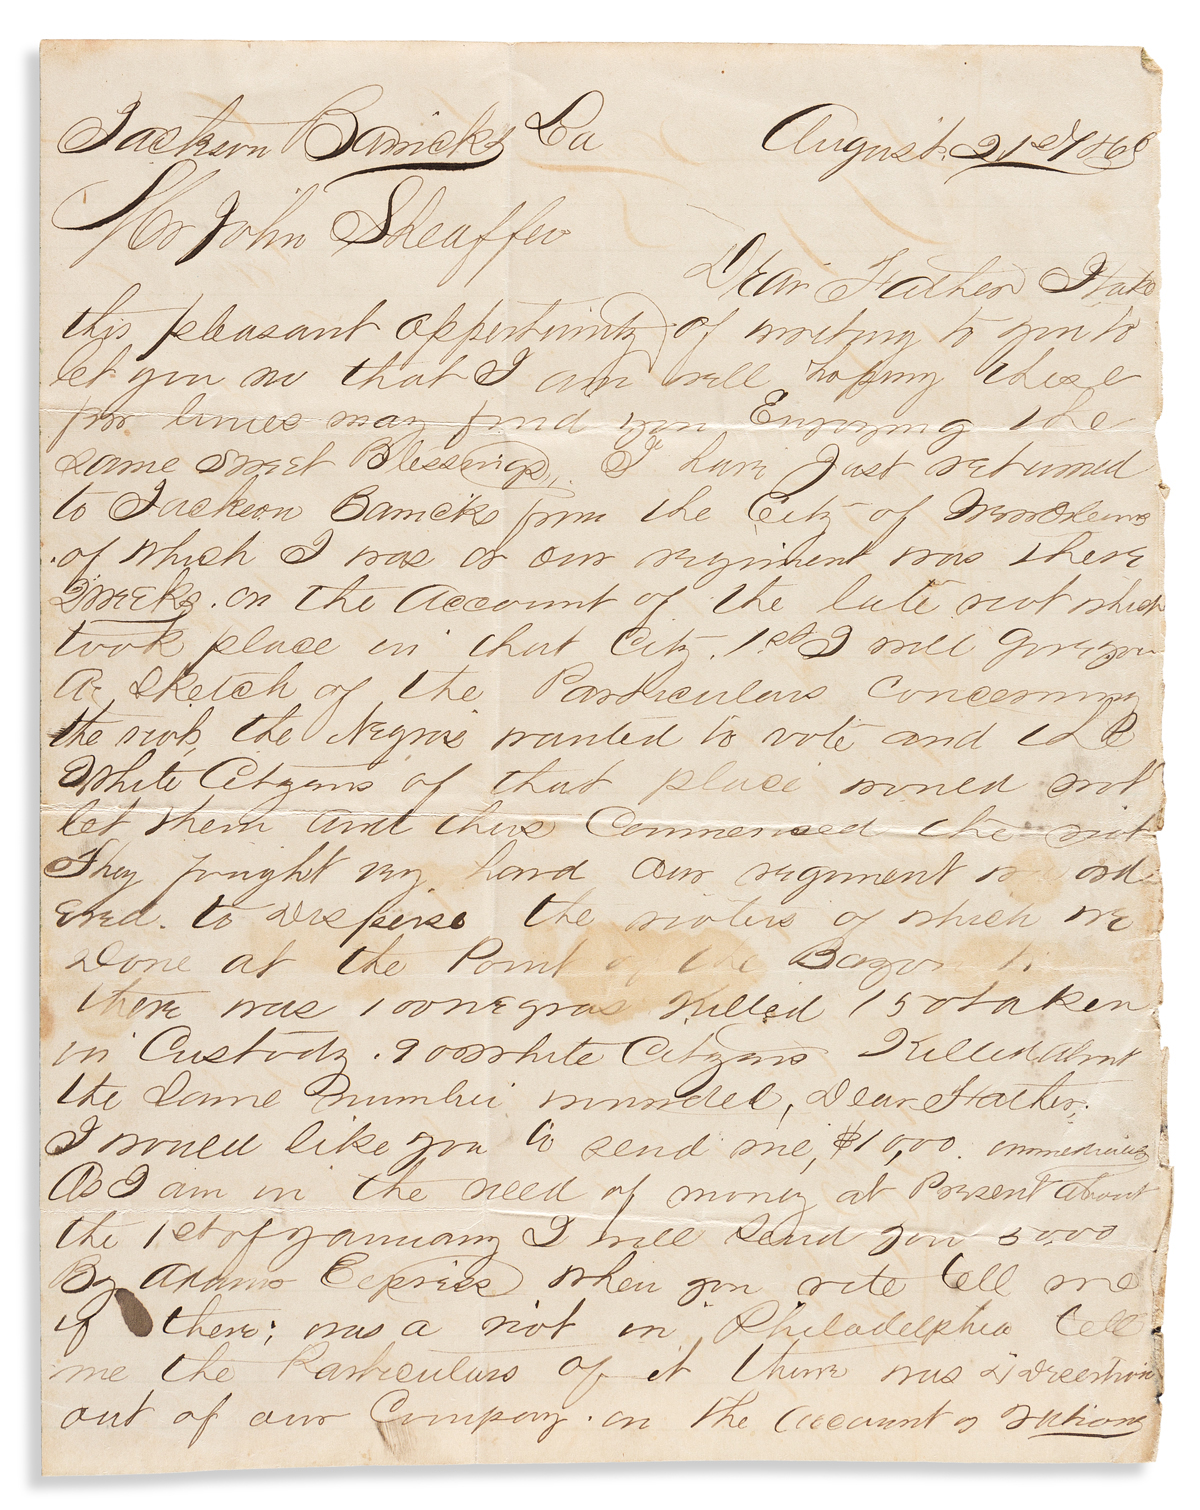 Jackson Barricks La August 21st 1866
Mr John Sheaffer
Dear Father I take
this pleasant oppertunity of writing to you to
let you no that I am well hoping these
few lines may find you Enjoying the
same Sweet Blessings, I have Just returned
to Jackson Barricks from the City of New Orleans
of which I was or our regiment was there
3 weeks. on the Account of the late riot which
took place in that City. 1st I will Give you
A Sketch of the Particulars Concerning
the riot, the Negros wanted to vote and the
White Citzens of that place would not
let them and thus Commensed the riot
They fought very hard Our regiment was ord
ered. to Disperse the rioters of which we
Done at the Point of the Bayonet
there was 100 negros Killed 150 taken
in Custody. 900 White Citzens Killed about
the Same Number wounded, Dear Father,
I would like you to send me, $10,00. immediately
As I am in the need of money at Present about
the 1st of January I will Send you 5000
By Adams Express when you rite tell me
if there; was a riot in Philadelphia tell
me the Particulars of it there was
out of our Company. on the Account of rations